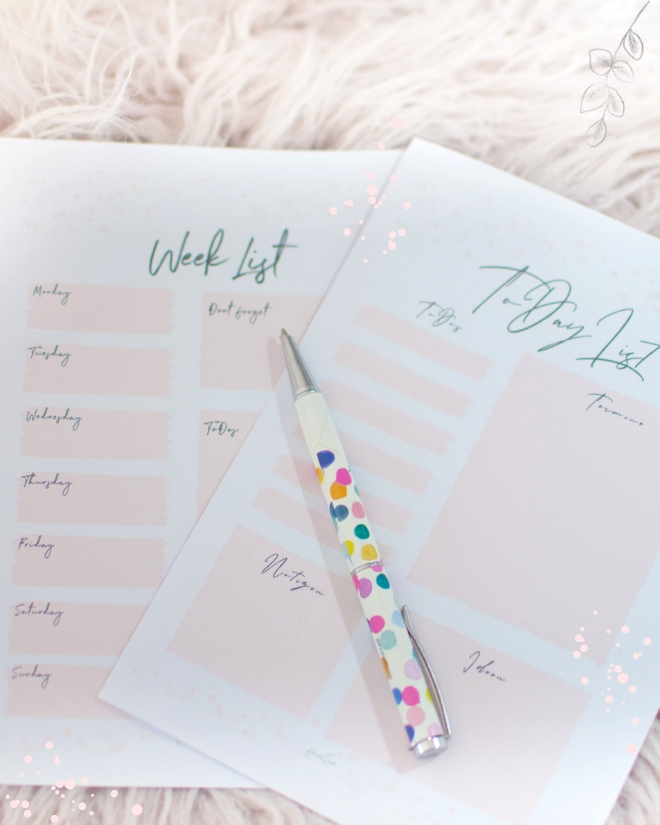 Week List
Monday
Tuesday
Wednesday
Thursday
Friday
Saturday
Sunday
Dont forget
ToDos
ToDay List
ToDos
Termine
Notizen
Ideen